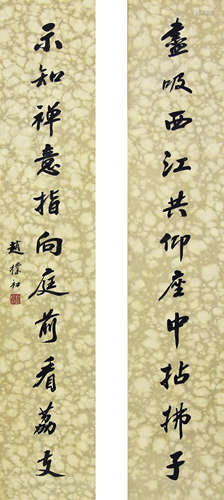 盡吸西江共仰座中拈拂子
示知禅意指向庭前看荔支
趙樸初